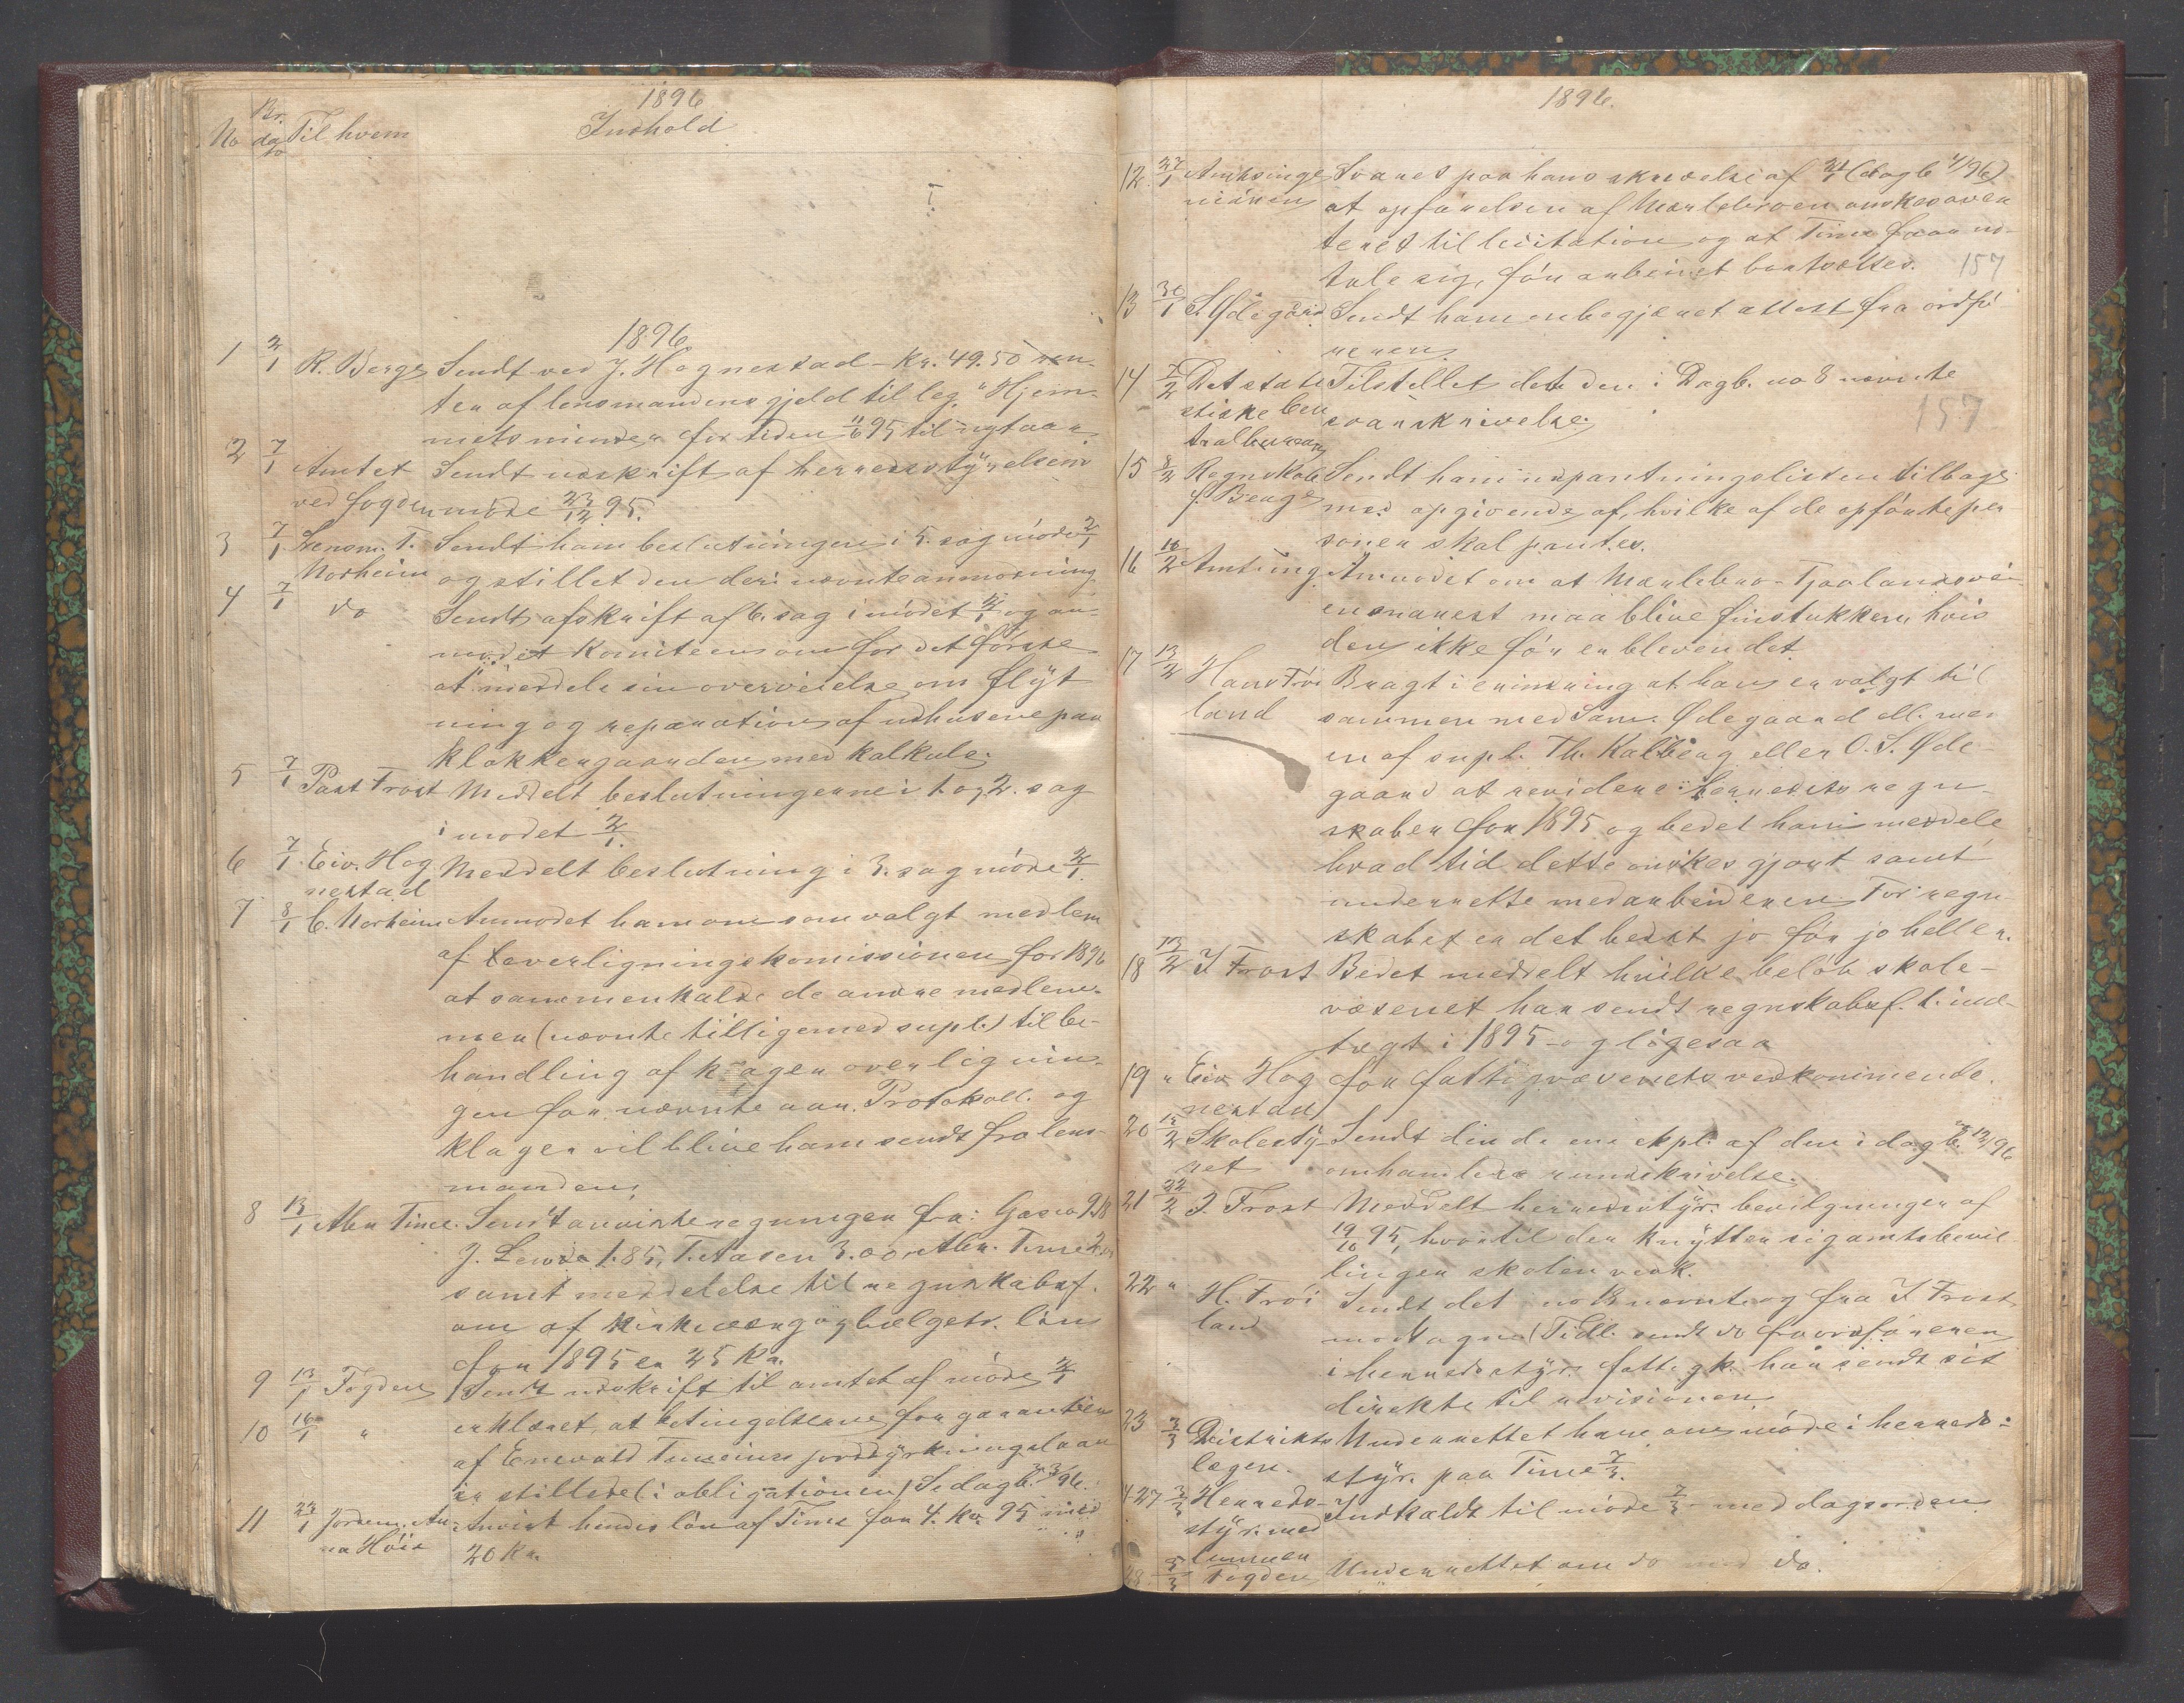 1896
No Br. dato Til hvem Indhold
1896
1 2/1 R. Berge Sendt ved J. Hognestad Kr. 49.50 ren-
ter af lensmandens gjeld til leg. "Hjem-
mets minder for tiden 11/6 95 til nytaar
2 7/1 Amtet Sendt udskrift af herredsstyrelsens
ved fogden møde 23/12 95.
3 7/1 Lensm. T. Sendt ham beslutningen i 5. sag møde 2/1
Norheim og stillet den deri nævnte anmodning
4 7/1 do Sendt afskrift af 6. sag i mødet 2/1 og an-
modet Komiteen om for det første
at meddele sin overveielse om flyt
ning og reparation af udhusene paa
Klokkergaarden med kalkule.
5 7/1 Past Frost Meddelt beslutningerne i 1 og 2. sag
i mødet 2/1.
6 7/1 Eiv. Hog Meddelt beslutning i 3. sag møde 2/1.
nestad
7 8/1 C. Norheim Anmodet ham om som valgt medlem
af overligningskomissionen for 1896
at sammenkalde de andre medlem-
mer (nævnte tilligemed supl.) til be-
handling af klager over lignin-
gen for nævnte aar. Protokoll. og
klager vil blive ham sendt fra lens-
manden.
8 13/1 Abr. Time. Sendt anviste regninger fra: Gæsco 9.18
J. Lende 1.85, T. Aasen 3.00 Abr. Time 2.
samt meddelelse til regnskabsf.
om af kirkesang og bælgetr. løn
for 1895 er 25 Kr.
9 13/1 Fogden Sendt udskrift til amtet af møde 2/1
10 16/1 " erklæret, at betingelserne for garantien
af Enevald jorddyrkningslaan
er stillede (i obligationen) Se dagb. 3/96.
11 23/1 Jordem. An- Anvist hendes løn af Time for 4. Kv. 95 med
na Høie 20 Kr.
1896.
12. 23/1 Amtsinge Svaret paa hans skrivelse af 21/1 (dagb 4/96)
niøren at opførelsen af bro ønskes aver
teret til licitation og at Time faar ud-
tale sig, før arbeidet bortsættes. 157
13 30/1 S. Ødegård Sendt ham en begjæret attest fra ordfø
reren.
14 7/2 Det stati Tilstillet dette den i Dagb. no 8 nævnte
stiske Cen svarskrivelse. 157
tralbureau
15 8/2 Regnskabs Sendt ham udpantningslisten tilbage
f. Berge med opgivende af, hvilke af de opførte per
soner skal pantes.
16 10/2 Amtsing. Anmodet om at bro-Tjaalandsvei
en snarest maa blive finstukken hvis
den ikke før er bleven det
17 13/2 Hans Frø Bragt i erindring at han er valgt til
land sammen med Sam. Ødegaard ell. mer
en af supl. Th. Kalberg eller O. S. Øde-
gaard at revidere herredets regn-
skaber for 1895 og bedet ham meddele
hvad tid dette ønskes gjort samt
underrette medarbeideren. For regn
skabet er det bedst jo før jo heller.
18 13/2 J Frost Bedet meddelt hvilke beløb skole-
væsenet har sendt regnskabsf. t. ind-
tægt i 1895 og ligesaa
19 " Eiv Hog for fattigvæsenets vedkommende.
nestad
20 15/2 Skolesty- Sendt en expl. af den i dagb. 12/96
ret omhandlede rundskrivelse.
21 22/2 J. Frost Meddelt herredsstyr. bevilgninger af
19/10 95, hvortil der knytter sig amtsbevil
lingen skolen vedk.
22 " H. Frøi Sendt det no nævnte og fra J Frost
land Tidl. sendt do fra ordføreren
i herredsstyr. fattigk. har sendt sit
direkte til revisionen
23 3/3 Distrikts Underrettet ham om møde i herreds-
lægen. styr. paa Time 7/3.
3/3 Herreds- Indkaldt til møde 7/3 med dagsorden
styr. med
lemmer
28 3/3 Fogden Underrettet om do med do.